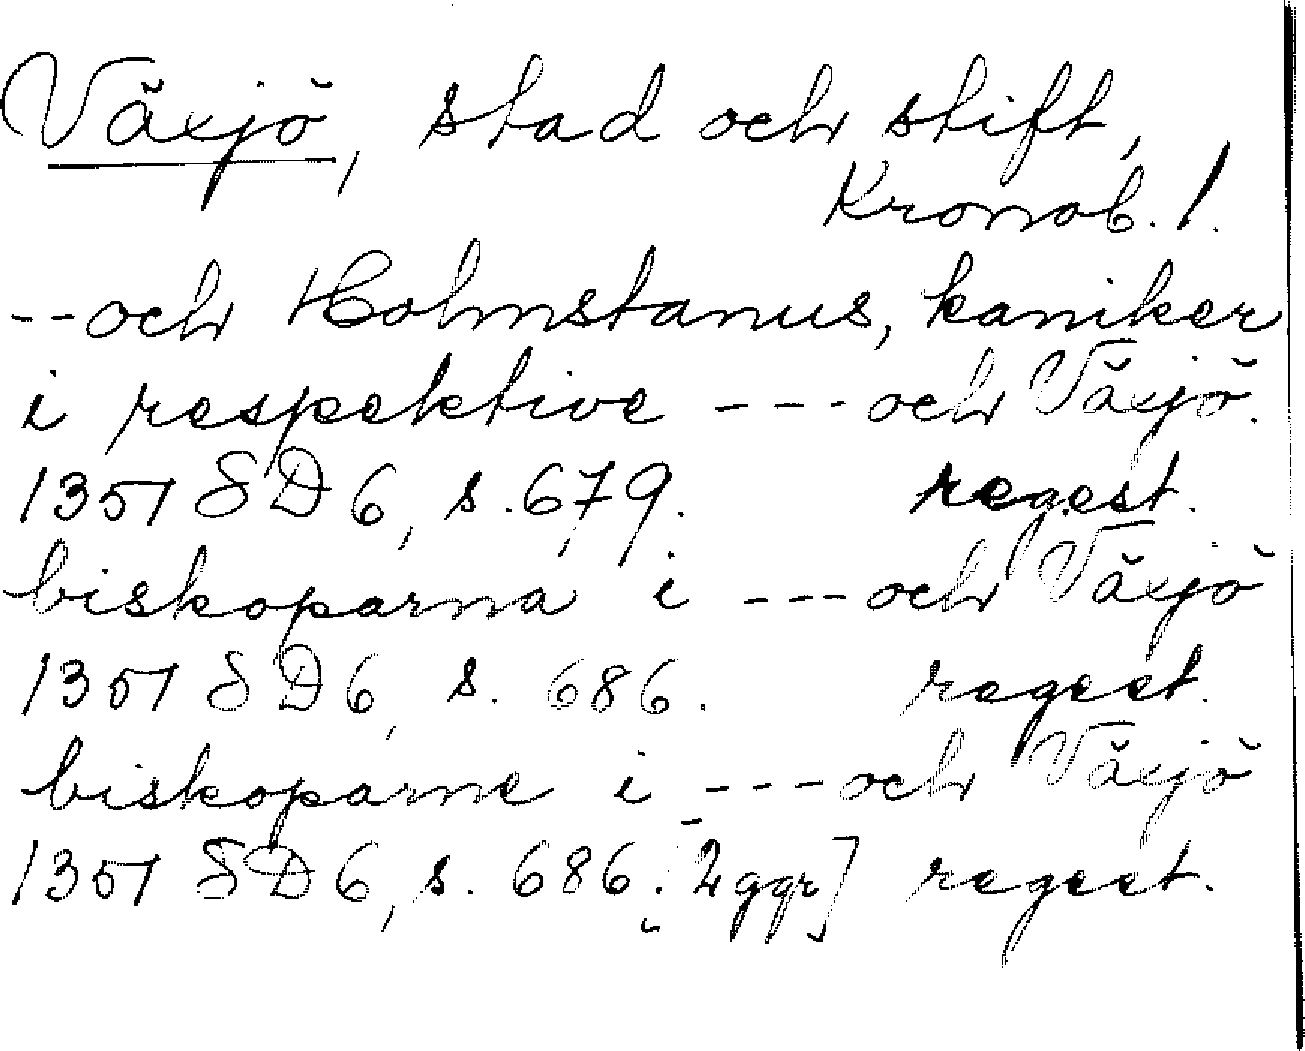 Växjö, stad och stift,
Kronob. l.
-- och Holmstanus, kaniker
i respektive --- och Växjö.
1351 SD 6, s. 679. regest.
biskoparna i --- och Växjö
1351 SD 6, s. 686. regest.
biskoparne i --- och Växjö
1351 SD 6, s. 686. [2 ggr] regest.